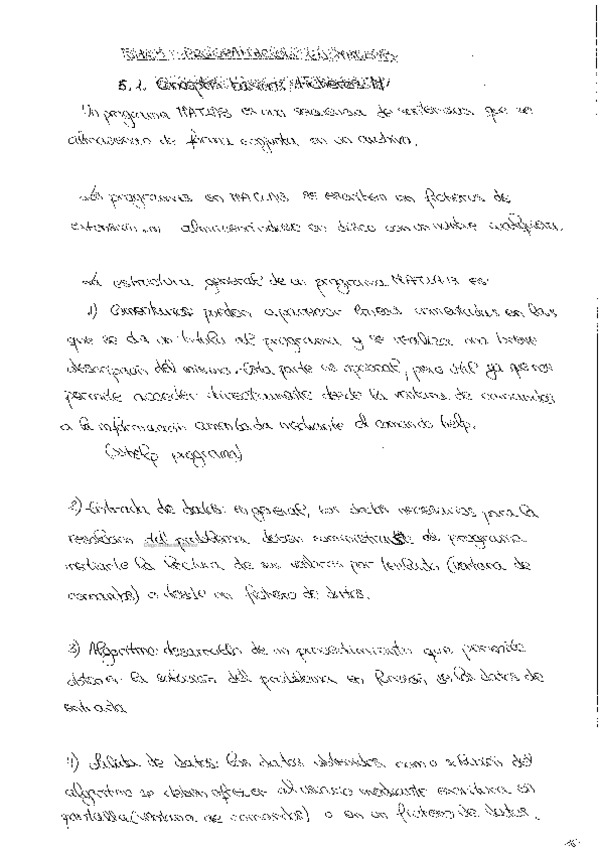 Tema 5: Programación en MATLAB
5.1. Conceptos básicos. Ficheros M
Un programa MATLAB es una secuencia de sentencias que se
almacenan de forma conjunta en un archivo.
Los programas en MATLAB se escriben en ficheros de
extensión .m almacenándose en disco con un nombre cualquiera.
La estructura general de un programa MATLAB es:
1) Comentarios: pueden aparecer líneas comentadas en las
que se da un título al programa y se realiza una breve
descripción del mismo. Esta parte es opcional, pero útil ya que nos
permite acceder directamente desde la ventana de comandos
a la información comentada mediante el comando help.
(>>help program)
2) Entrada de datos: en general, los datos necesarios para la
resolución del problema deben suministrarse al programa
mediante la lectura de sus valores por teclado (ventana de
comandos) o desde un fichero de datos.
3) Algoritmo: desarrollo de un procedimiento que permite
obtener la solución del problema en función de los datos de
entrada
4) Salida de datos: Los datos obtenidos como solución del
algoritmo se deben ofrecer al usuario mediante escritura en
pantalla (ventana de comandos) o en un fichero de datos.